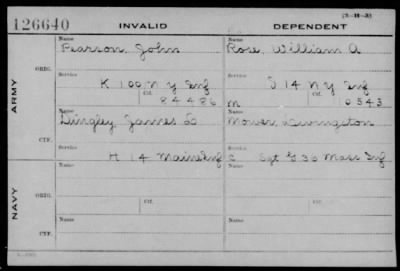 126640 INVALID DEPENDENT
Name Name
Pearson, John Rose, William A
ARMY
ORIG.
Service Service
K 100 N Y Inf I 14 N Y Inf
Ctf. Ctf.
84486 M 10543
Name Name
Dingley James L Mower, Livingston
CTF.
Service Service
H 14 Maine Inf C Sgt G 36 Mass Inf
NAVY
Name Name
ORIG.
Ctf. Ctf.
Name Name
CTF.